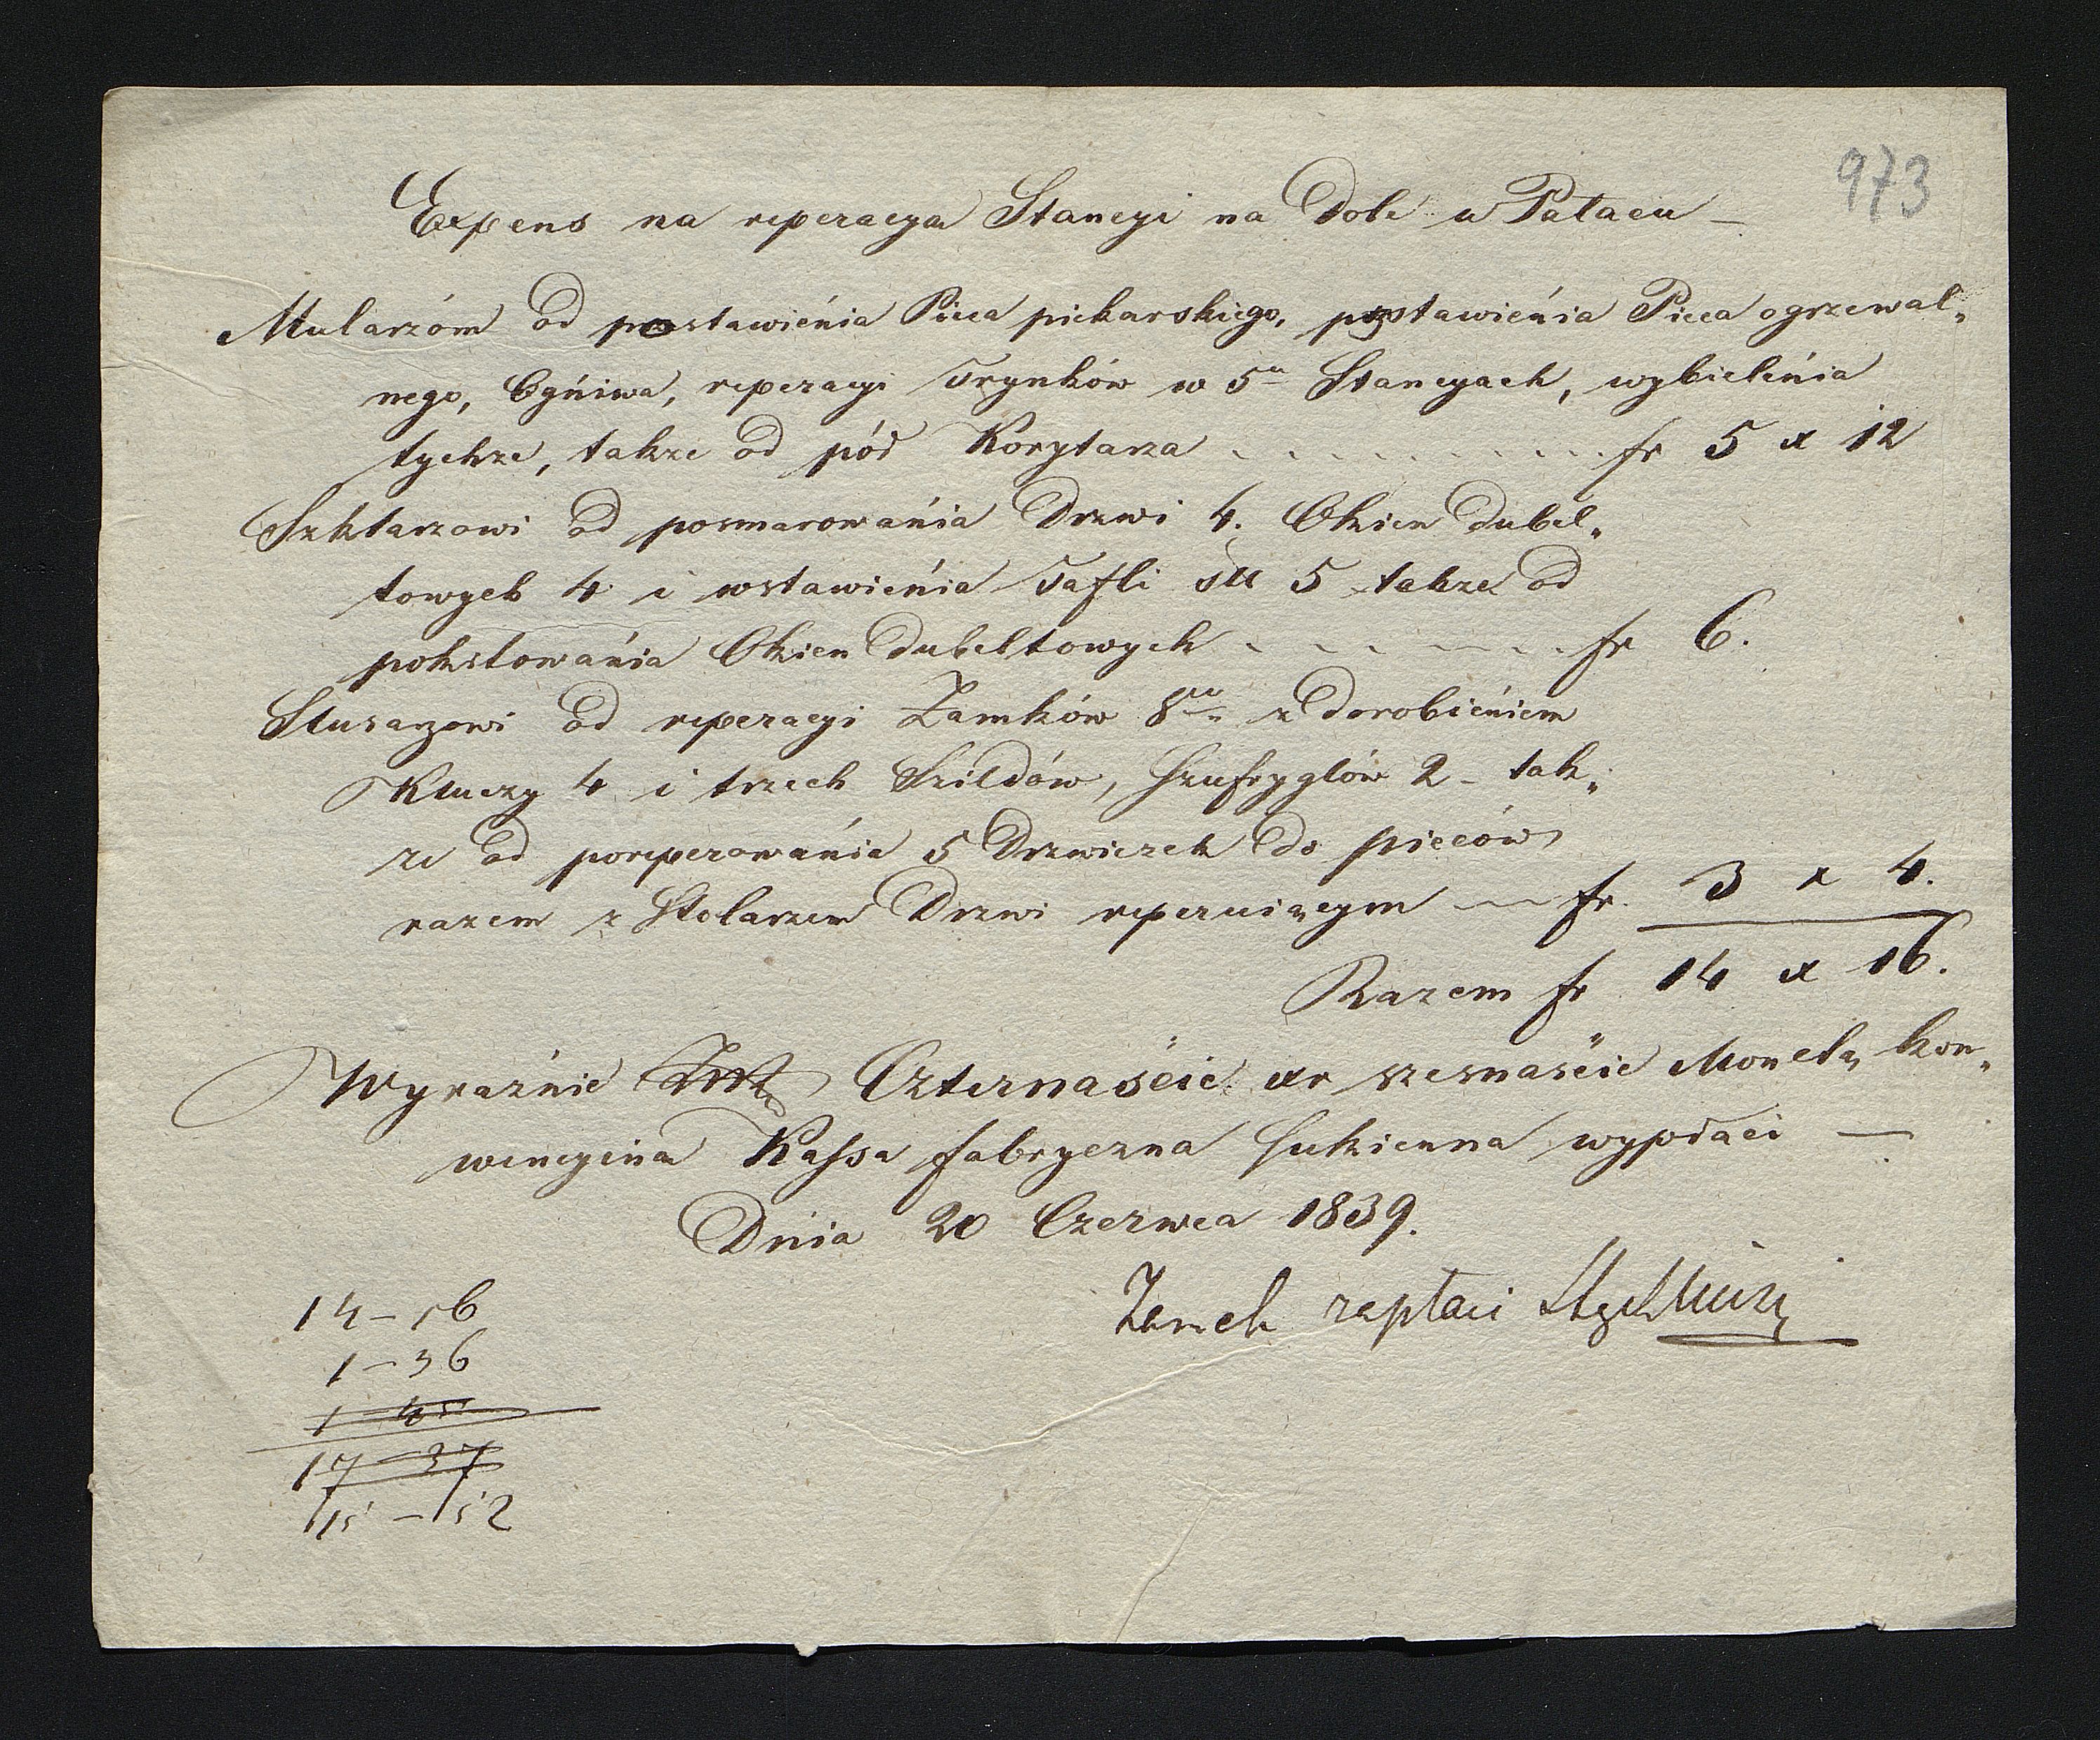 973
Expens na reperacya Stancyi na Dole w Pałacu —
Mularzóm od postawieńia Pieca piekarskiego, postawieńia Pieca ogrzewal„
nego, Ogńiwa, reperacyi Trynków w 5u Stancyach, wybieleńia
tychże, także od pód Korytarza . . . . . . . . . . fr 5 x 12
Szklarzowi od posmarowańia Drzwi 4. Okien Dubel„
towych 4 i wstawieńia Tafli su 5 także od
pokstowańia Okien Dubeltowych . . . . . . fr 6.
Slusarzowi od reperacyi Zamków 8u z dorobieńiem
Kluczy 4 i trzech Szildów, Szufryglów 2 – tak„
że od poreperowańia 5 Drzwiczek do pieców
razem z Stolarzem Drzwi reperuiącym — fr. 3 x 4.
Razem fr 14 x 16.
Wyraźnie Czternaście xr szesnaście Monetą kon„
wencyina Kassa fabryczna Sukienna wypłaci —
Dnia 20 Czerwca 1839.
Zamek zapłaci
14 – 16
1 – 36
1 – 45
17 – 37
15 – 52